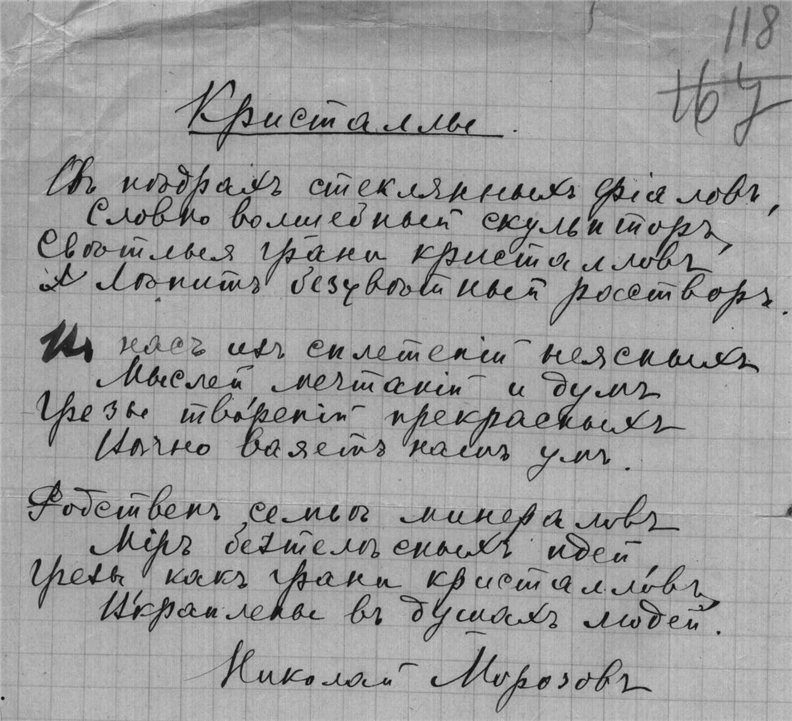 118
167
Кристаллы.
Въ нѣдрахъ стеклянныхъ фіаловъ,
Словно волшебный скульпторъ,
Свѣтлыя грани кристалловъ
Лѣпитъ безцвѣтный растворъ.
насъ изъ сплетеній неясныхъ
Мыслей мечтаній и думъ
Грезы твореній прекрасныхъ
Вѣчно ваяетъ нашъ умъ.
Родственъ семьѣ минераловъ
Міръ безтѣлесныхъ идей,
Грезы какъ грани кристалловъ,
Вкраплены въ душахъ людей.
Николай Морозовъ